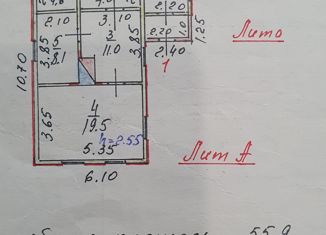 2.10
3.10
2.20
3
11.0
5
8.1
3.85
3.85
2.20
1.0
1.25
2.40
1
Лито
10.70
4
19.5
3.65
h=2.55
5.35
6.10
Лит А
55.9